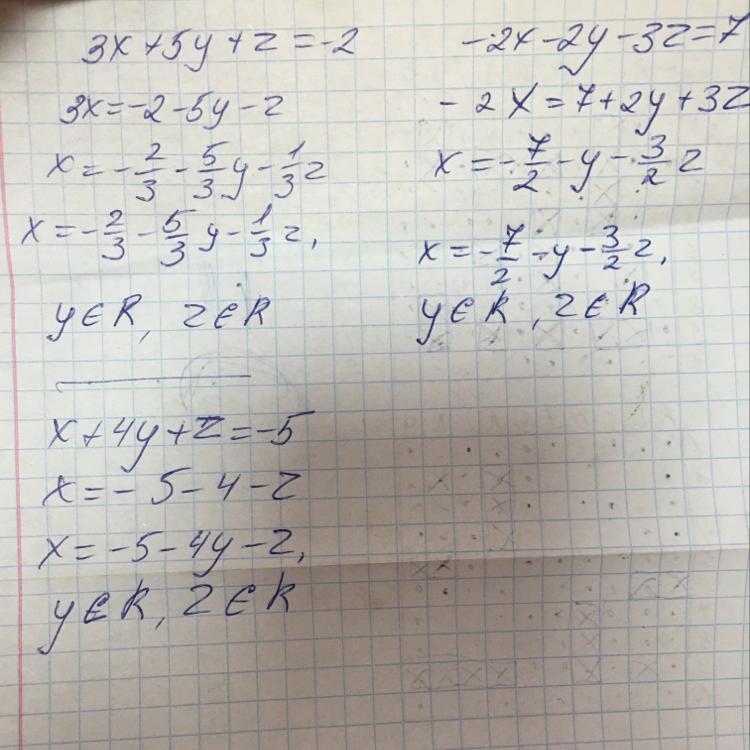 3x+5y+z=-2
3x=-2-5y-z
x=-2/3-5/3y-1/3z
x=-2/3-5/3y-1/3z,
y∈R, z∈R
-2x-2y-3z=7
-2x=7+2y+3z
x=-7/2-y-3/2z
x=-7/2-y-3/2z,
y∈R, z∈R
x+4y+z=-5
x=-5-4-z
x=-5-4y-z,
y∈R, z∈R